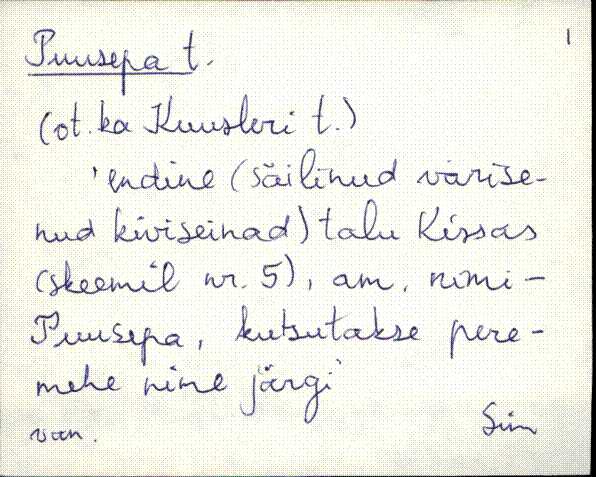 1
Puusepa t.
(vt. ka Kuusleri t.)
'endine (säilinud varise-
nud kiviseinad) talu Kissas
(skeemil nr. 5), am. nimi -
Puusepa, kutsutakse pere-
mehe nime järgi'
van. Sim